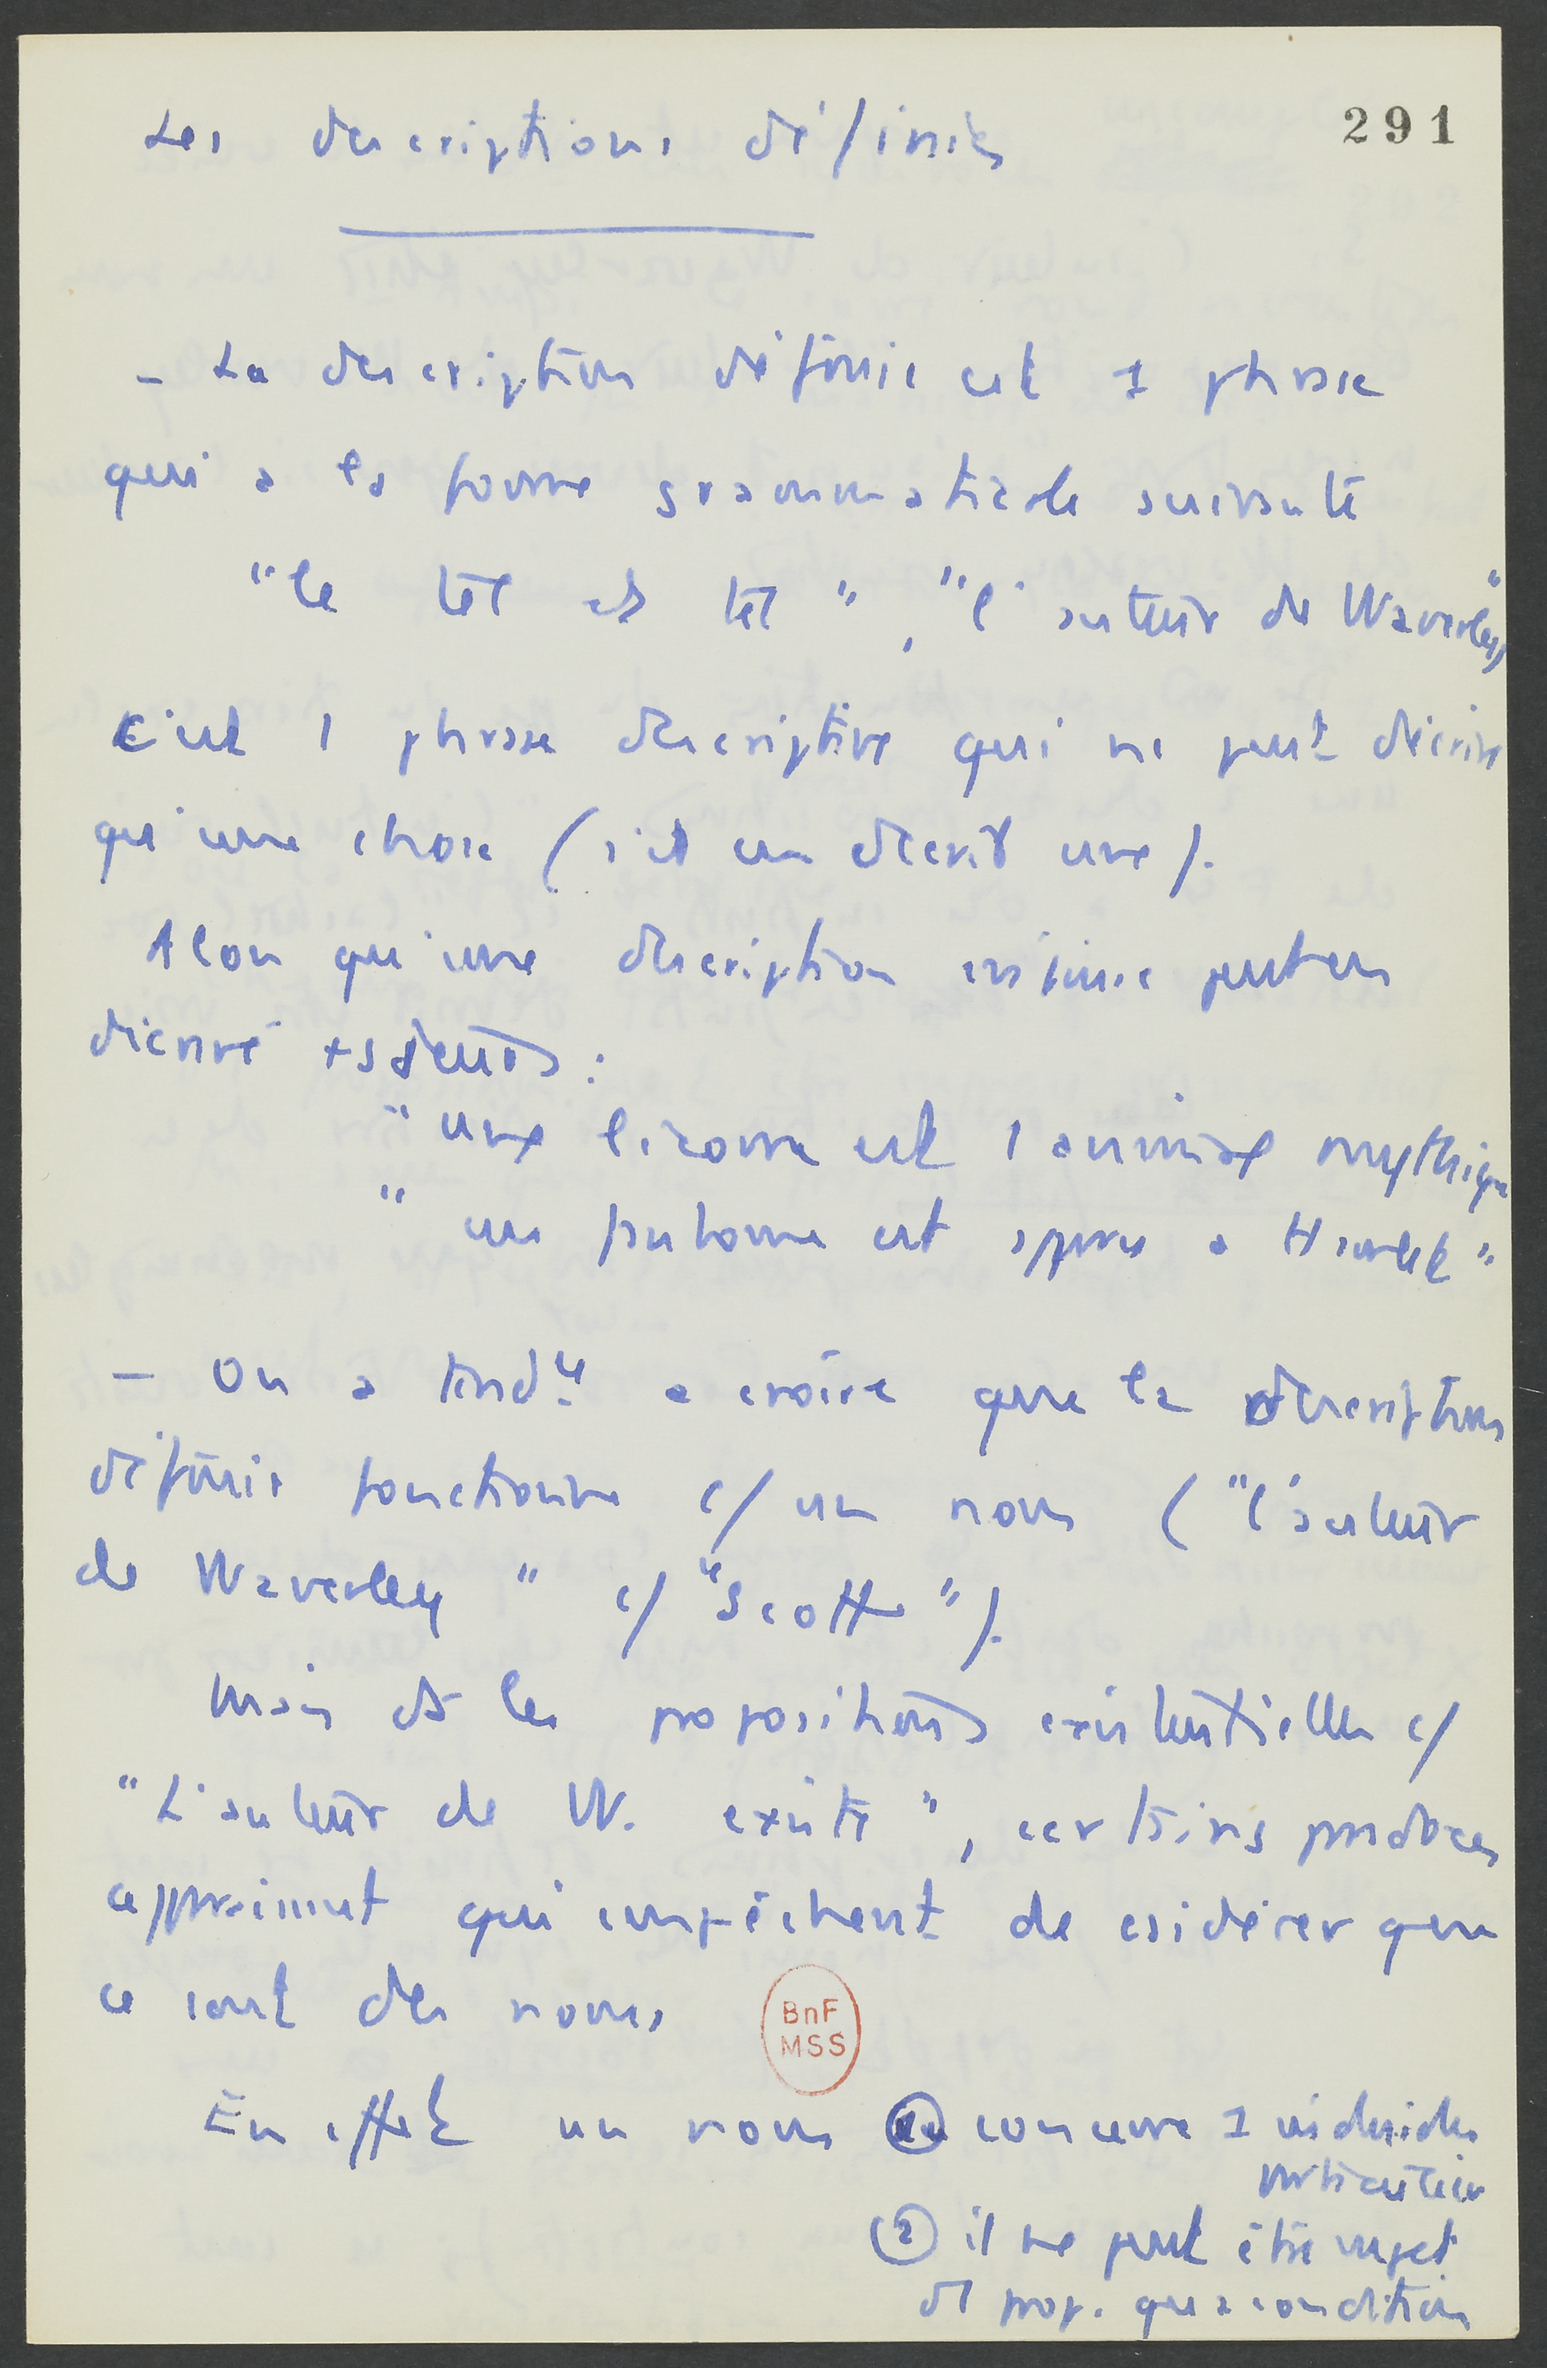 291
Les descriptions définies
- La description définie est 1 phrase
qui a la forme grammaticale suivante
"le tel et tel", "l'auteur de Waverley"
C'est 1 phrase descriptive qui ne peut décrire
qu'une chose (s'il en décrit une).
Alors qu'une description infinie peut en
décrire :
"une licorne est 1 animal mythique
"un fantome est apparu a Hamlet"
- On a tendce a croire que la description
définie fonctionne c/ un nom ("l'auteur
de Waverley" c/ "Scott").
Mais ds les propositions existentielles c/
"L'auteur de W. existe", certains paradoxes
apparaissent qui empêchent de csidérer que
ce sont des noms
BnF
MSS
En effet un nom ① concerne 1 individu
particulier
② il ne peut être sujet
d prop. qu'a condition